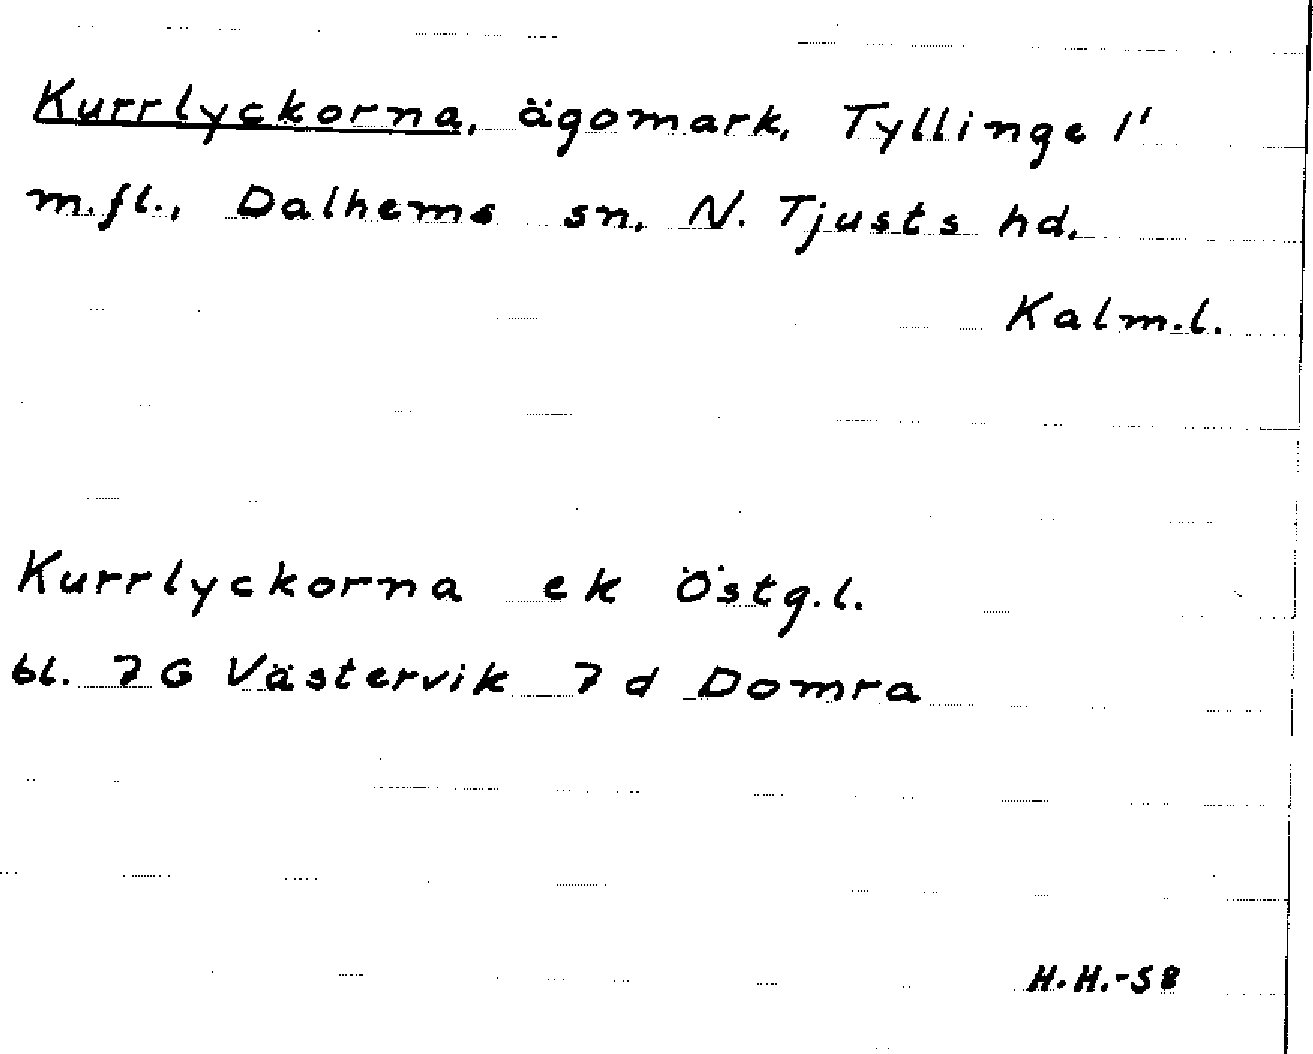 Kurrlyckorna, ägomark, Tyllinge 1'
m.fl., Dalhems sn, N. Tjusts hd.
Kalm.l.
Kurrlyckorna ek Östg.l.
bl. 7G Västervik 7 d Domra
H.H.-58